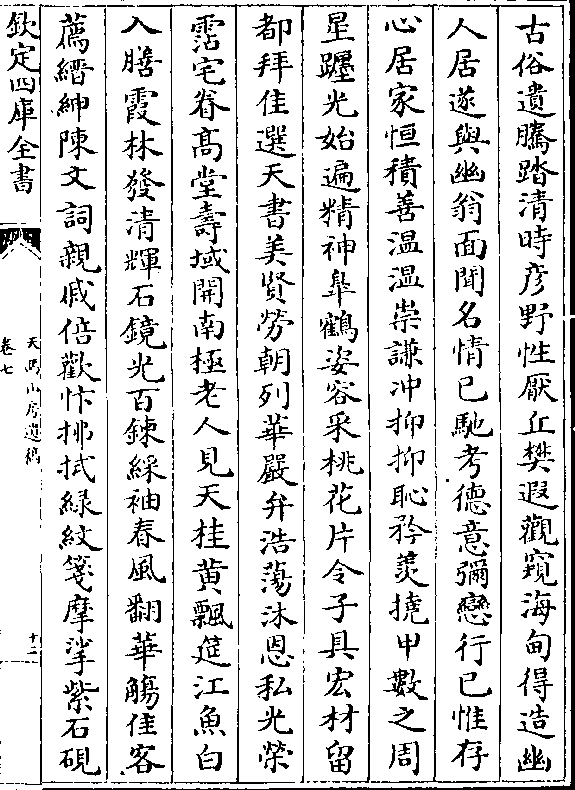 古俗遺騰踏清時彦野性厭丘樊遐觀窺海甸得造幽
人居遂與幽翁面聞名情已馳考德意彌戀行已惟存
心居家恒積善温温崇謙冲抑抑恥矜羡撓甲數之周
星躔光始遍精神臯鶴姿容采桃花片令子具宏材留
都拜佳選天書美賢勞朝列華嚴弁浩蕩沐恩私光榮
霑宅眷髙堂壽域開南極老人見天桂黄飄筵江魚白
入膳霞林發清輝石鏡光百鍊綵袖春風翻華觴佳客
薦縉紳陳文詞親戚倍歡忭拂拭緑紋箋摩挲紫石硯
欽定四庫全書
天馬山房遺稿
卷七
十二